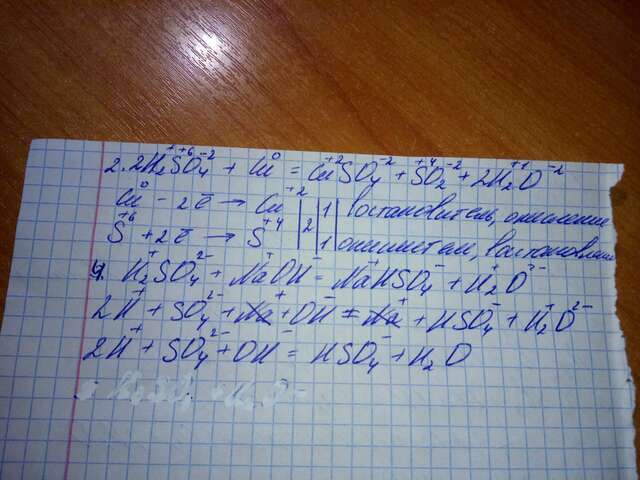 2. 2H₂⁺S⁺⁶O₄⁻² + Cu⁰ = Cu⁺²SO₄⁻² + S⁺⁴O₂⁻² + 2H₂⁺¹O⁻²
Cu⁰ - 2ē → Cu⁺² | | 1 | востановитель, окисление
S⁺⁶ + 2ē → S⁺⁴ | 2 | 1 окислител, востановление
4. H₂⁺SO₄²⁻ + Na⁺OH⁻ = Na⁺HSO₄⁻ + H₂⁺O²⁻
2H⁺ + SO₄²⁻ + Na⁺ + OH⁻ = Na⁺ + HSO₄⁻ + H₂⁺O²⁻
2H⁺ + SO₄²⁻ + OH⁻ = HSO₄⁻ + H₂O